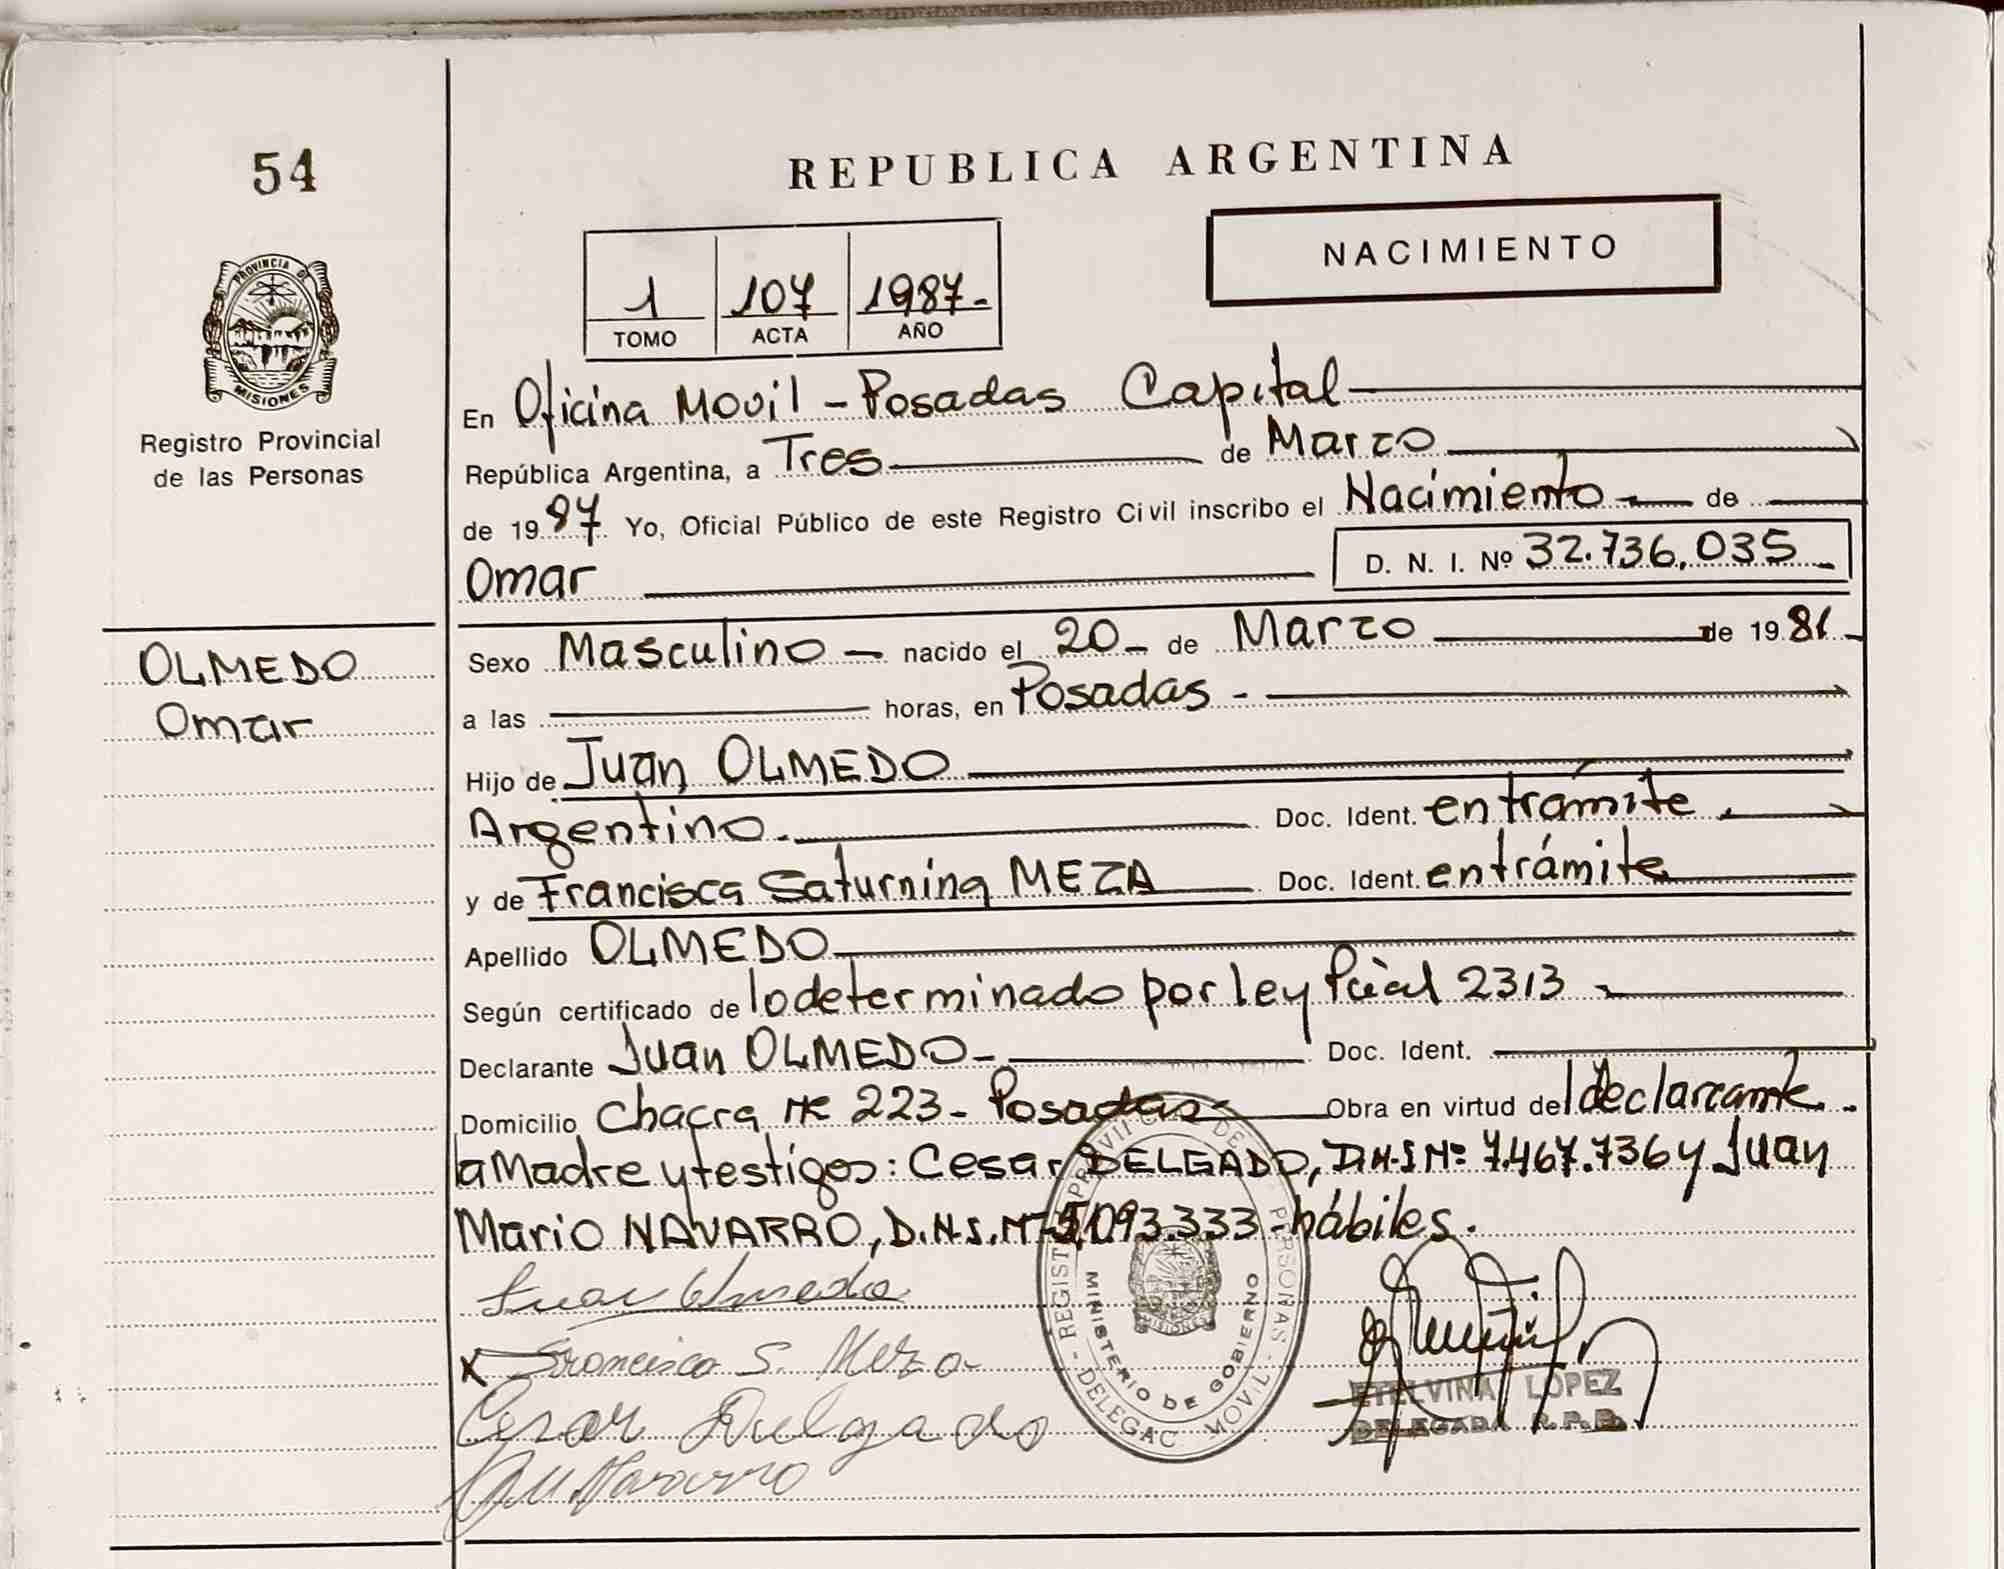 54
REPUBLICA ARGENTINA
NACIMIENTO
1 107 1987-
TOMO ACTA AÑO
PROVINCIA DE
MISIONES
Registro Provincial
de las Personas
En Oficina Movil - Posadas Capital
República Argentina, a Tres de Marzo
de 1987 Yo, Oficial Público de este Registro Civil inscribo el Nacimiento de
Omar D. N. I. Nº 32.736.035
OLMEDO
Omar
Sexo Masculino - nacido el 20 - de Marzo de 1981
a las horas, en Posadas -
Hijo de Juan OLMEDO
Argentino. Doc. Ident. en trámite
y de Francisca Saturnina MEZA Doc. Ident. en trámite
Apellido OLMEDO
Según certificado de lo determinado por ley Pcial 2313
Declarante Juan OLMEDO - Doc. Ident.
Domicilio Chacra Nº 223 - Posadas - Obra en virtud del declarante
la Madre y testigos: Cesar DELGADO, D.N.I Nº 7.467.736 y Juan
Mario NAVARRO, D.N.I. Nº 093.333 hábiles.
Juan Olmedo
x Francisca S. Meza
Cesar Delgado
Navarro
REGISTRO PROV. DE PERSONAS - DELEGAC MOVIL -
MINISTERIO DE GOBIERNO
MISIONES
ETELVINA LOPEZ
DELEGADA R.P.P.